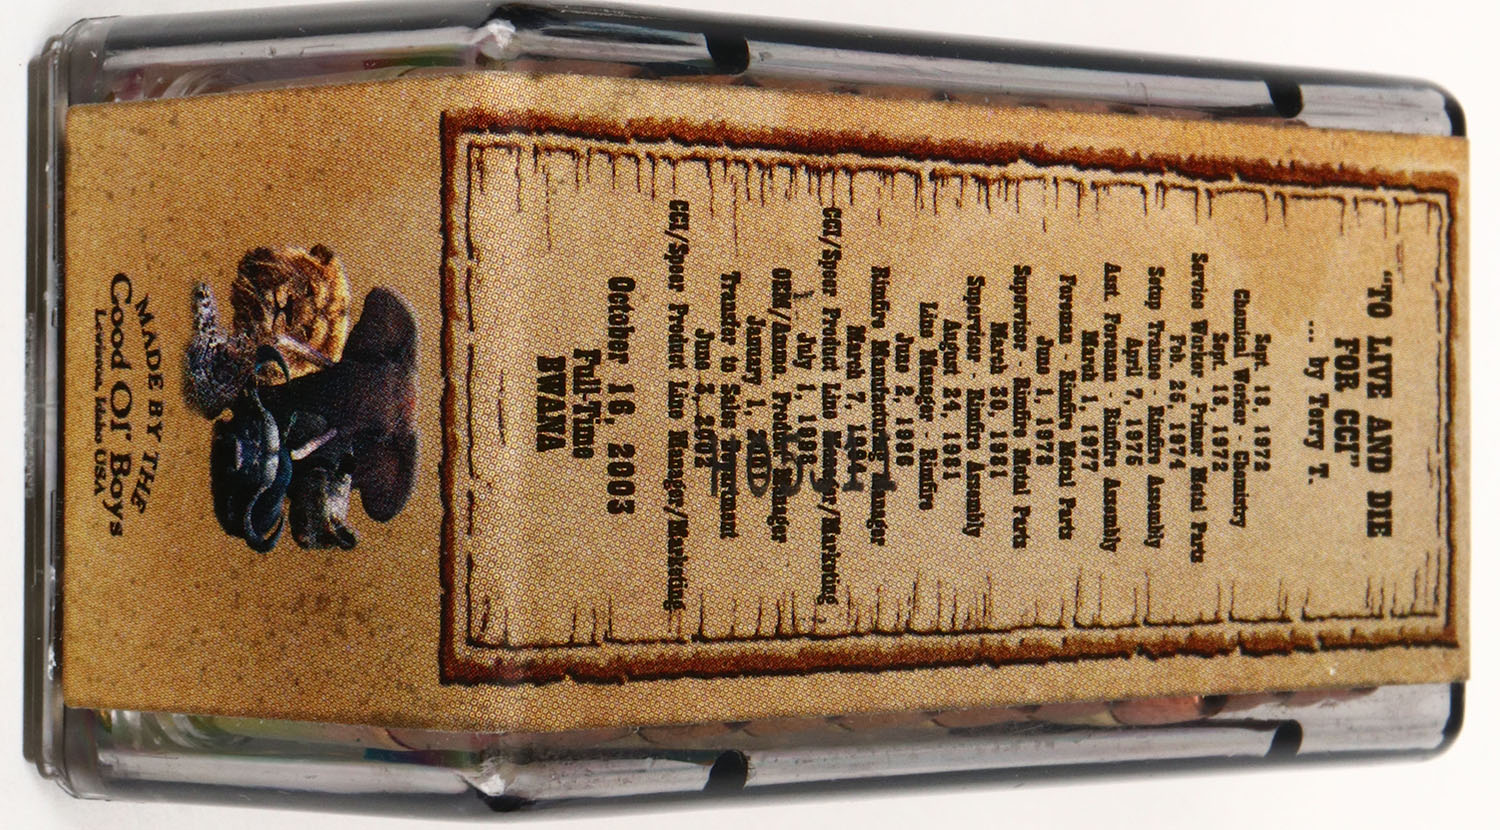 "TO LIVE AND DIE
FOR CCI"
... by Terry T.
Sept. 18, 1972
Chemical Worker - Chemistry
Sept. 18, 1972
Service Worker - Primer Metal Parts
Feb. 25, 1974
Setup Trainee - Rimfire Assembly
April 7, 1975
Asst. Foreman - Rimfire Assembly
March 1, 1977
Foreman - Rimfire Metal Parts
June 1, 1978
Supervisor - Rimfire Metal Parts
March 30, 1981
Supervisor - Rimfire Assembly
August 24, 1981
Line Manager - Rimfire
June 2, 1986
Rimfire Manufacturing Manager
March 7, 1994
CCI/Speer Product Line Manager/Marketing
July 1, 1998
OEM/Ammo. Product Manager
January 1,
Transfer to Sales Department
June 3, 2002
CCI/Speer Product Line Manager/Marketing
October 16, 2003
Full-Time
BWANA
MADE BY THE
Good Ol' Boys
Lewiston, Idaho USA